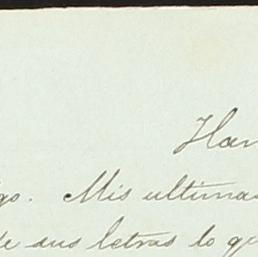 Han
go. Mis ultimas
de sus letras lo qu